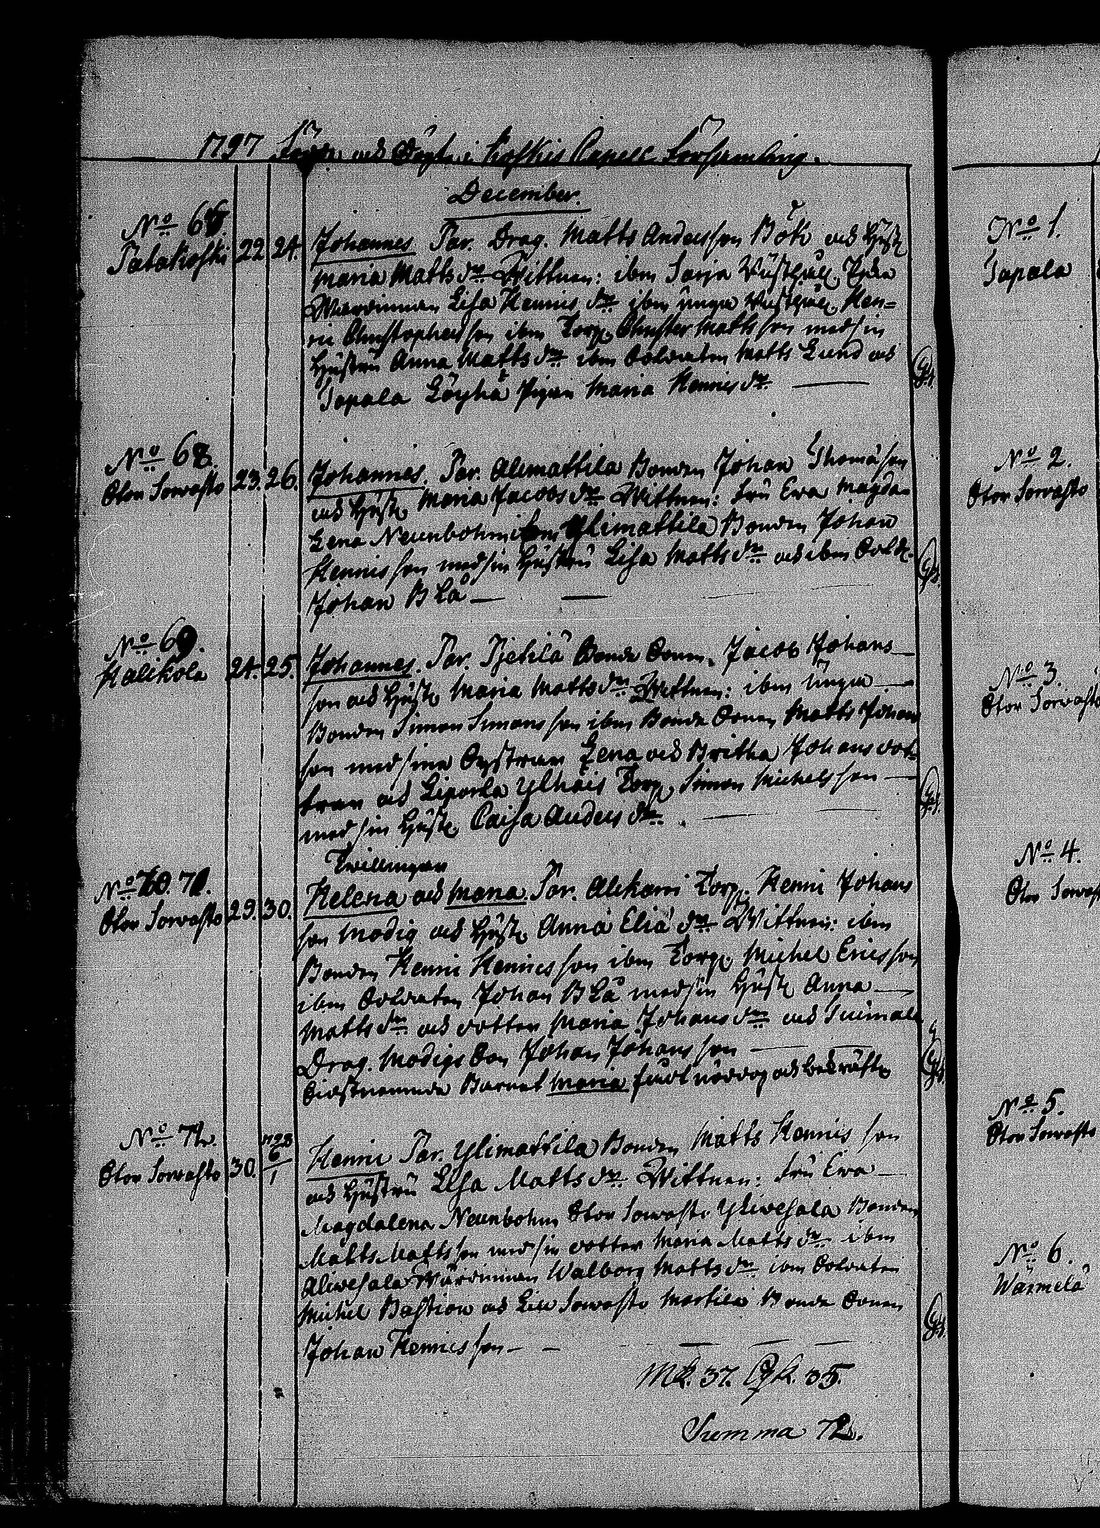 1797 Födde och Döpte i Koskis Capell Församling.
December.
No 67.
Talakoski 22 24. Johannes Par. Drag. Matts Andersson Bök och Hustr.
Maria Matts dr Wittnen: ibm
Lisa Henrics dr ibm unge Hen-
ric Christophersson ibm Torp. Christer Matts son med sin
Hustru Anna Matts dr ibm Soldaten Matts Lund och
Tapala Löyhä Pigan Maria Henrics dr
No 68.
Stor Sorvasto 23. 26. Johannes. Par. Alimattila Bonden Johan Thomas son
och Hustr. Maria Jacobs dr Wittnen: Fru Eva Magda-
lena Neunbohm Ylimattila Bonden Johan
Henrics son med sin Hustru Lisa Matts dr och ibm Sold.
Johan Blå
No 69.
Kalikola 24. 25. Johannes. Par. Pietilä Bonde Sonen Jacob Johans
son och Hustr. Maria Matts dr Wittnen: ibm Unga
Bonden Simon Simons son ibm Bonde Sonen Matts Johans
son med sina Systrar Lena och Britha Johans döt-
trar och Liporla Torp. Simon Michels son
med sin Hustr. Caisa Anders dr.
Twillingar
No 70. 71.
Stor Sorvasto 29. 30. Helena och Maria. Par. Torp. Henric Johans
son Modig och Hustr. Anna Elia dr Wittnen: ibm
Bonden Henric Henrics son ibm Torp. Michel Erics son
ibm Soldaten Johan Blå med sin Hustr. Anna
Matts dr och dotter Maria Johans dr och
Drag. Modigs Son Johan Johans son
Sistnemnde Barnet Maria nöddop och bekräft.
No 72.
Stor Sorvasto 30. 1798 6/1 Henric Par. Ylimattila Bonden Matts Henrics son
och Hustru Lisa Matts dr Wittnen: Fru Eva
Magdalena Neunbohm Stor Sorvasto Bonden
Matts Matts son med sin dotter Maria Matts dr ibm
Walborg Matts dr ibm Soldaten
Michel Bastion och Lill Sorvasto Martila Bonde Sonen
Johan Henrics son
Mk. 37. Qk. 35.
Summa 72.
No 1.
Tapala
No 2.
Stor Sorvasto
No 3.
Stor Sorvasto
No 4.
Stor Sorvast
No 5.
Stor Sorvasto
No 6.
Wärmelä